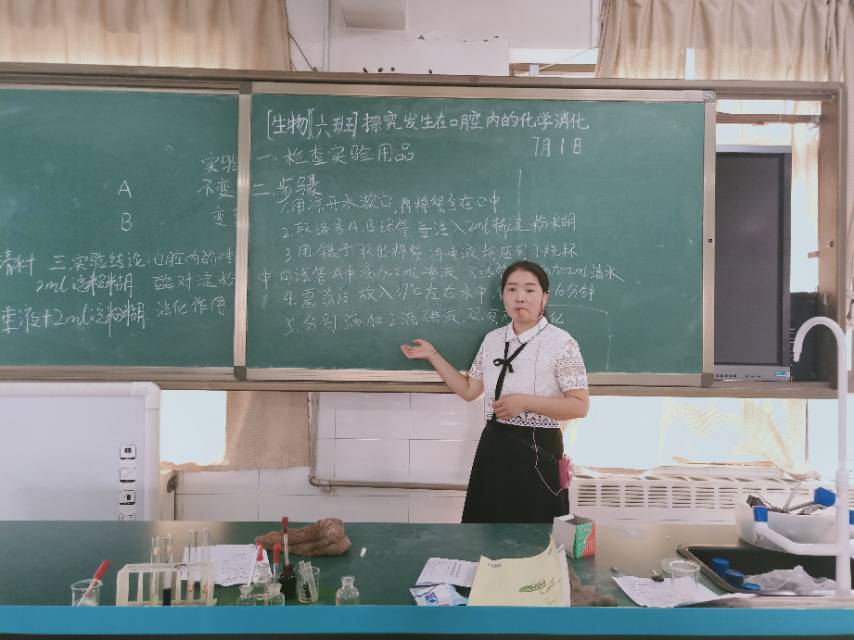 [生物][六班] 探究发生在口腔内的化学消化
7月1日
实验 一、检查实验用品
不变 二、步骤
1.用凉开水漱口,
2.取编号A、B试管 注入2ml稀淀粉米糊
3.用镊子取出棉絮 将唾液挤压到小烧杯
中向试管A中滴加2ml唾液 2ml清水
4.震荡后 放入37℃左右水中 分钟
5.分别滴加2滴碘液,观察 化
A
B
变
三.实验结论:口腔内的唾
2ml淀粉糊
酶对淀粉
液+2ml淀粉糊
消化作用